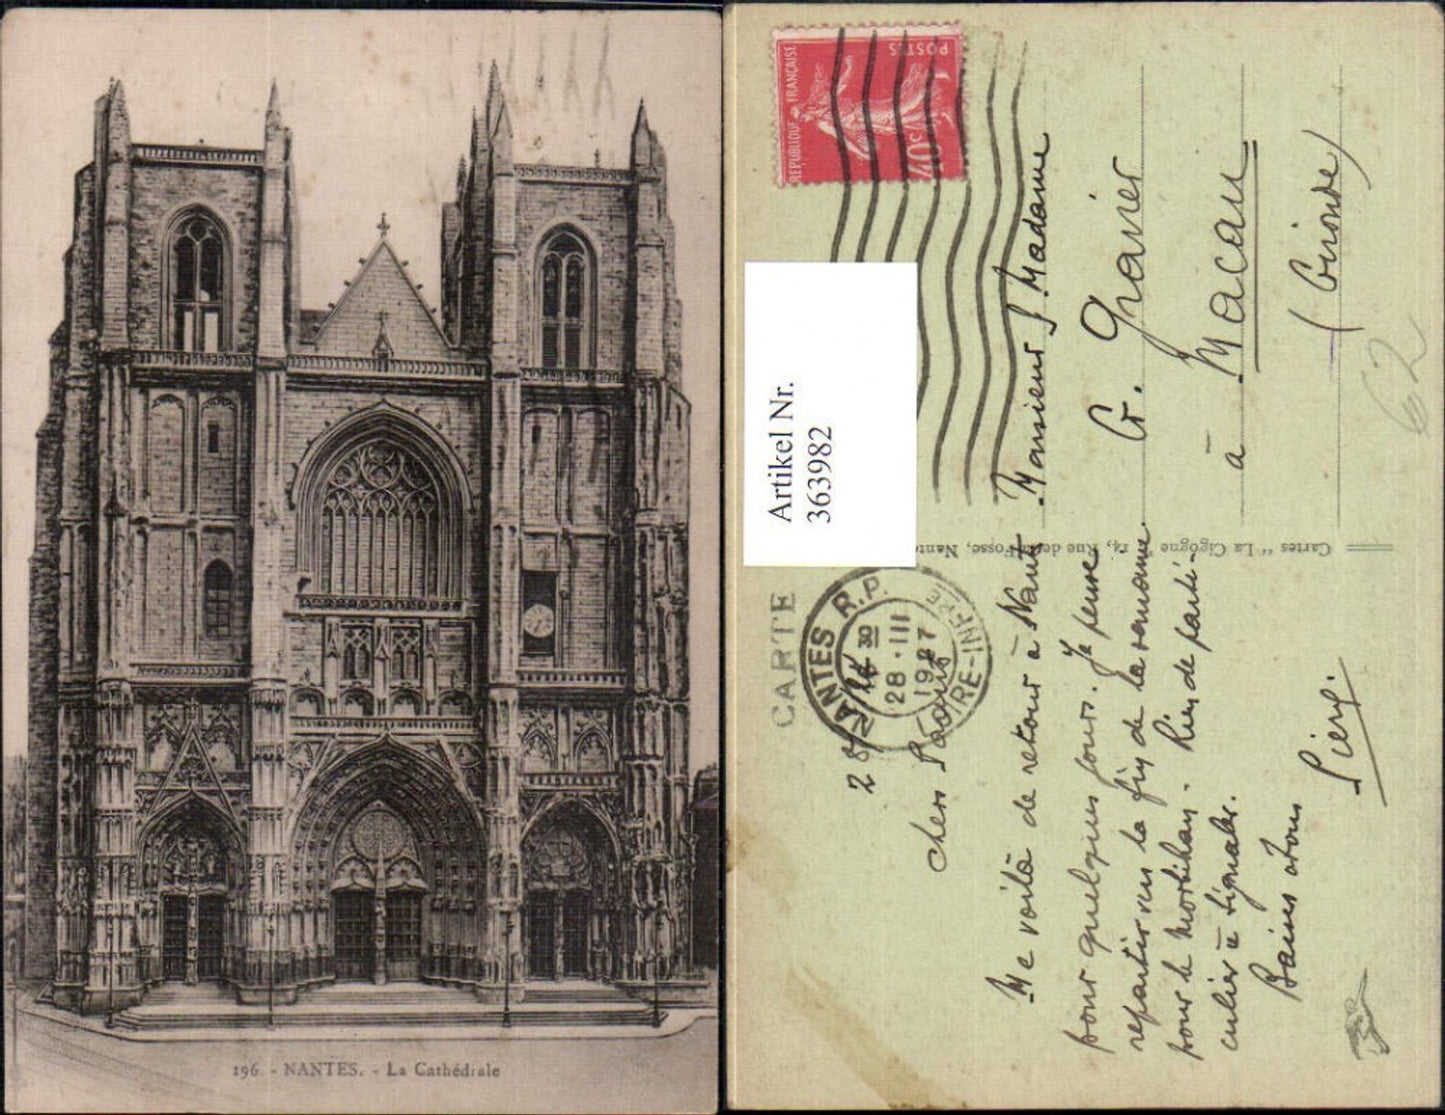 196. - NANTES. - La Cathédrale
REPUBLIQUE FRANÇAISE
POSTES
40c
Artikel Nr.
363982
CARTE
NANTES R.P.
28 · III
1927
LOIRE-INFRE
Cartes " La Cigogne " 14, Rue de la Fosse, Nantes
Monsieur & Madame
G. Gravier
à Macau
(Gironde)
62
Chers
Me voilà de retour à Nantes
pour quelques jours. Je pense
repartir vers la fin de la semaine
pour le Morbihan. Rien de parti-
culier à signaler.
Baisers à tous